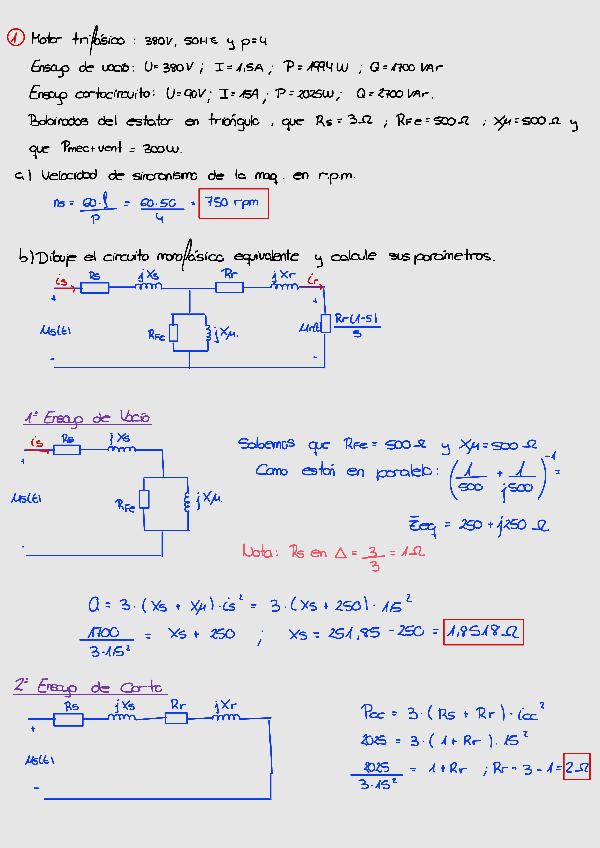 ① Motor trifásico : 380V, 50Hz y p=4
Ensayo de vacío: U=380V ; I=1,5A ; P=1994W ; Q=1700 VAr
Ensayo cortocircuito: U=90V ; I=15A ; P=2025W ; Q=2700 VAr.
Bobinados del estator en triángulo , que Rs=3Ω ; RFe=500Ω ; Xμ=500Ω y
que Pmec+vent = 300W.
a) Velocidad de sincronismo de la maq. en r.p.m.
ns = 60·f / p = 60·50 / 4 = 750 rpm
b) Dibuje el circuito monofásico equivalente y calcule sus parámetros.
is Rs jXs Rr jXr ir
+ +
μs(t) RFe jXμ. μr(t) Rr(1-s) / s
- -
1º Ensayo de Vacío
is Rs jXs
+
μs(t) RFe jXμ.
-
Sabemos que RFe = 500Ω y Xμ = 500Ω
Como están en paralelo: (1/500 + 1/j500)^-1 =
Zeq = 250 + j250 Ω
Nota: Rs en Δ = 3/3 = 1Ω
Q = 3·(Xs + Xμ)·is² = 3·(Xs + 250)·1,5²
1700 / 3·1,5² = Xs + 250 ; Xs = 251,85 - 250 = 1,8518Ω
2º Ensayo de Corto
Rs jXs Rr jXr
+
μs(t)
-
Pcc = 3·(Rs + Rr)·icc²
2025 = 3·(1 + Rr)·15²
2025 / 3·15² = 1 + Rr ; Rr = 3 - 1 = 2Ω